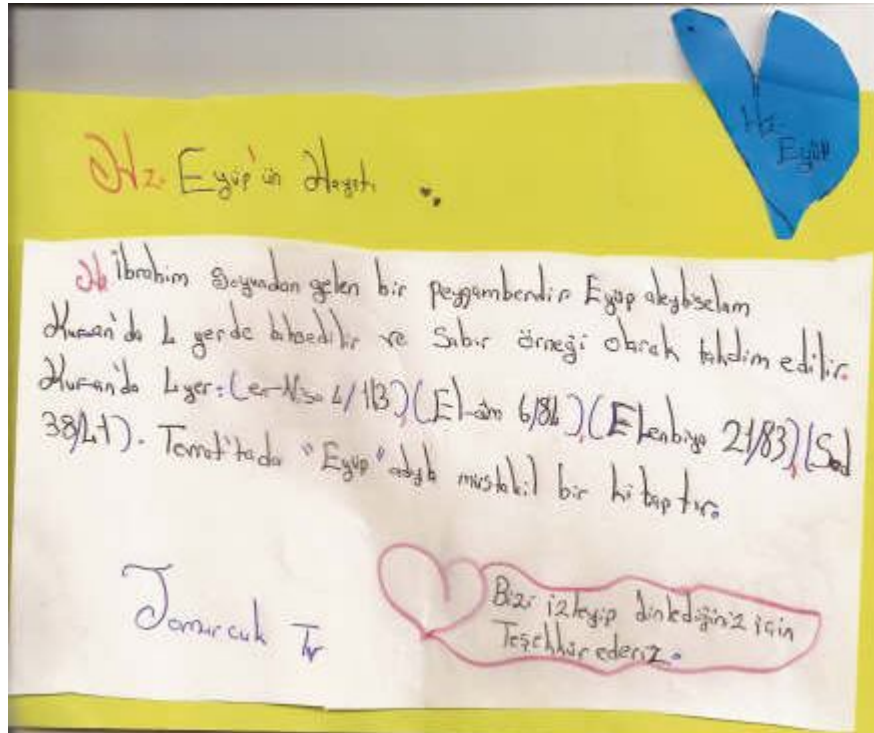 Hz. Eyüp'ün Hayatı
Hz. Eyüp
Hz İbrahim Soyundan gelen bir peygamberdir Eyüp aleyhiselam
Kuran'da 4 yerde bahsedilir ve Sabır örneği olarak takdim edilir.
Kuran'da 4 yer: (en-Nisa 4/163) (El-am 6/84) (El enbiya 21/83) (Sad
38/41). Tevrat'tada "Eyüp" adıyla müstakil bir kitaptır.
Tomurcuk Tv
Bizi izleyip dinlediğiniz için
Teşekkür ederiz.